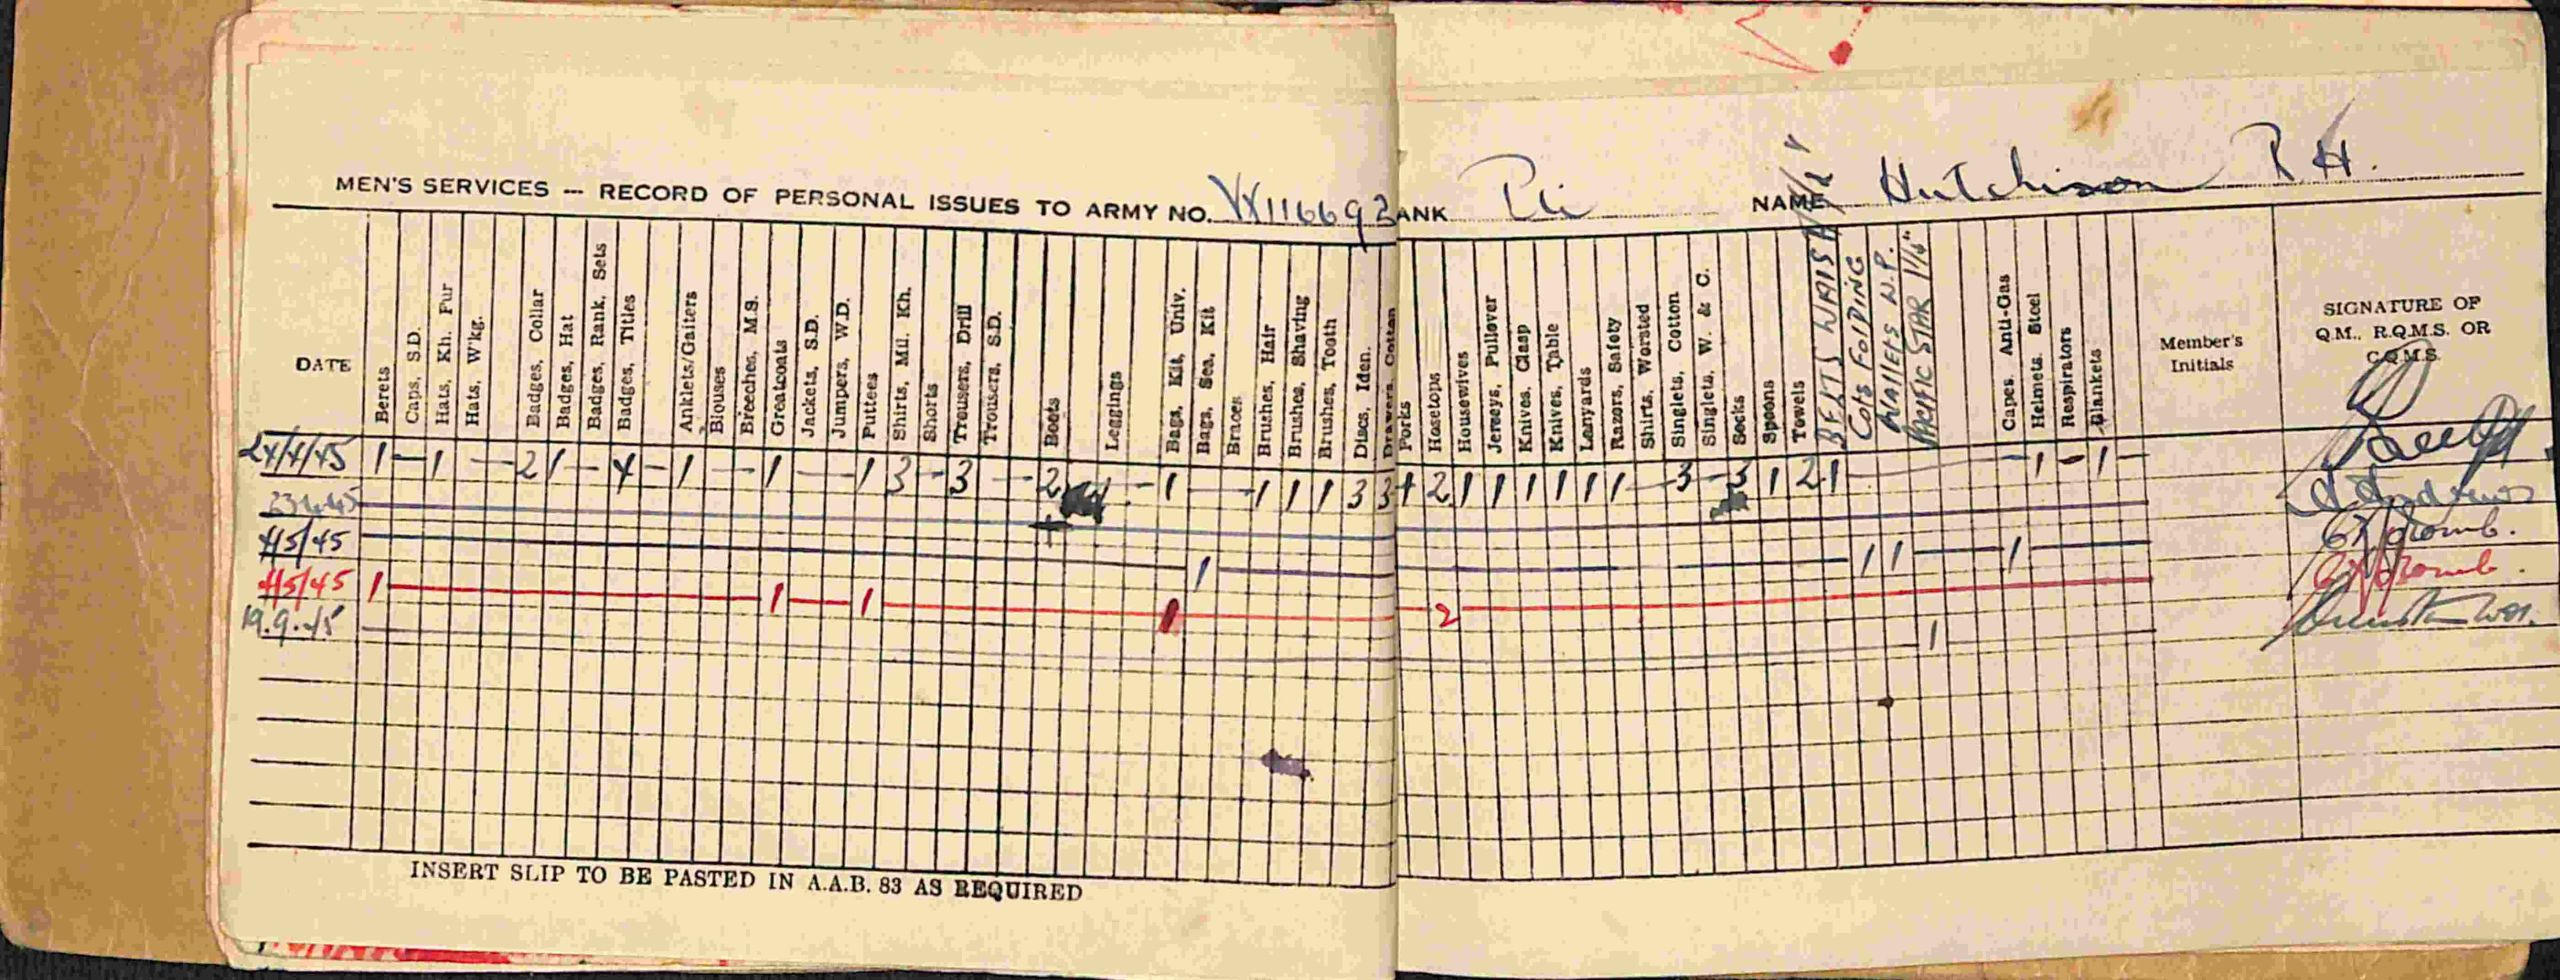 MEN'S SERVICES — RECORD OF PERSONAL ISSUES TO ARMY NO. VX116692 ANK Pte NAME Hutchison R H.
DATE
Berets
Caps, S.D.
Hats, Kh. Fur
Hats, W'kg.
Badges, Collar
Badges, Hat
Badges, Rank, Sets
Badges, Titles
Anklets/Gaiters
Blouses
Breeches, M.S.
Greatcoats
Jackets, S.D.
Jumpers, W.D.
Puttees
Shirts, Mil. Kh.
Shorts
Trousers, Drill
Trousers, S.D.
Boots
Leggings
Bags, Kit, Univ.
Bags, Sea, Kit
Braces
Brushes, Hair
Brushes, Shaving
Brushes, Tooth
Discs, Iden.
Drawers, Cotton
Forks
Hosetops
Housewives
Jerseys, Pullover
Knives, Clasp
Knives, Table
Lanyards
Razors, Safety
Shirts, Worsted
Singlets, Cotton
Singlets, W. & C.
Socks
Spoons
Towels
BELTS WAIST
COTS FOLDING
WALLETS W.P.
PACIFIC STAR 1/16"
Capes, Anti-Gas
Helmets, Steel
Respirators
Blankets
Member's
Initials
SIGNATURE OF
Q.M., R.Q.M.S. OR
C.Q.M.S.
24/4/45 1 — 1 — 2 1 — 4 — 1 — 1 — 1 3 — 3 — 2 — 1 — 1 1 1 3 3 1 2 1 1 1 1 1 1 — 3 — 3 1 2 1 — 1 - 1 —
4/5/45 1 — 1 1 — 1 —
4/5/45 1 — 1 — 1 — 1 — 2 —
19.9.45 — 1 —
INSERT SLIP TO BE PASTED IN A.A.B. 83 AS REQUIRED